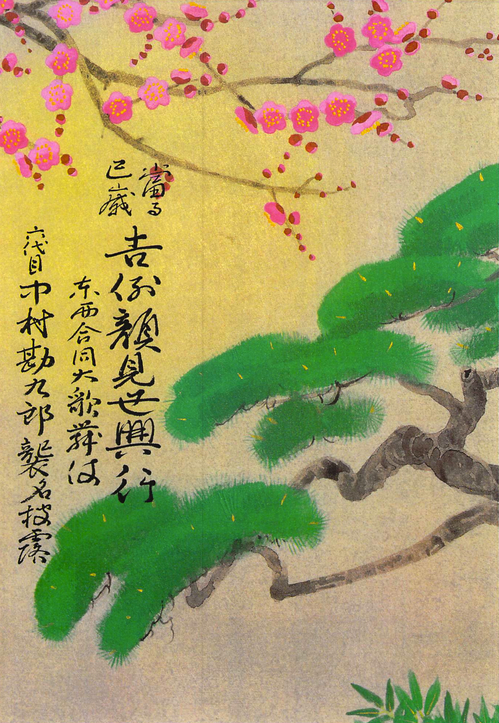 當る
巳歳
吉例顔見世興行
東西合同大歌舞伎
六代目中村勘九郎襲名披露